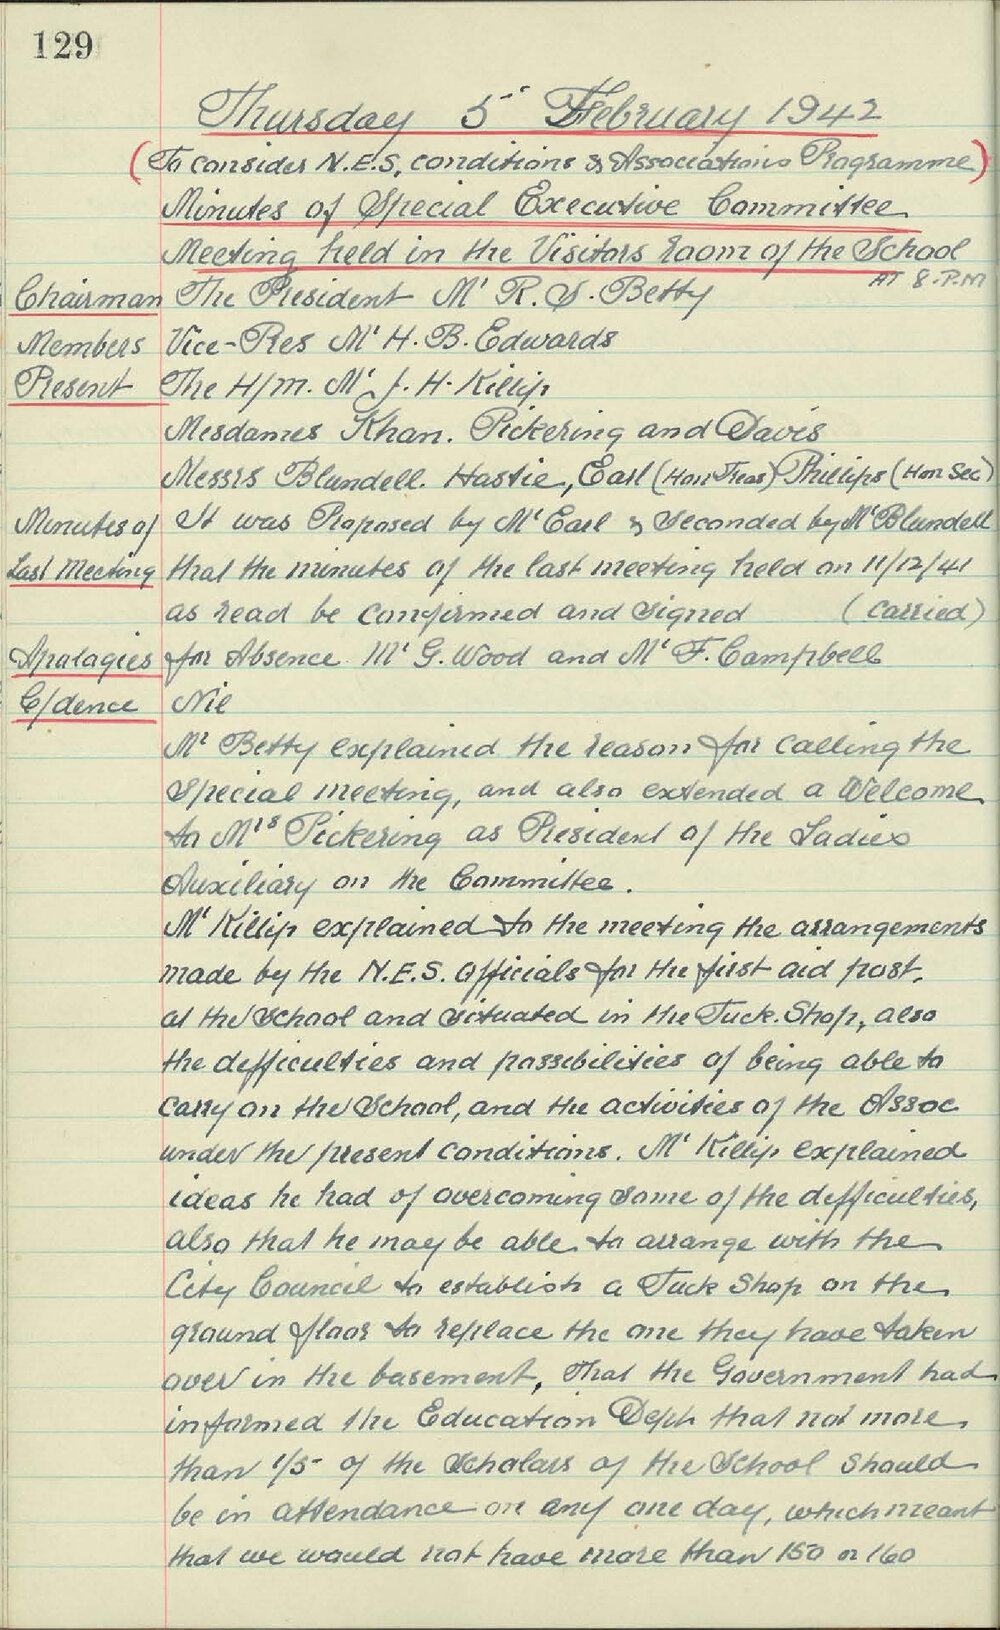 129
Thursday 5" February 1942
(To consider N.E.S. conditions & Associations Programme)
Minutes of Special Executive Committee
Meeting held in the Visitors room of the School
AT 8.P.M
Chairman The President Mr R. S. Betty
Members Vice-Pres Mr H. B. Edwards
Present The H/m. Mr J. H. Killip
Mesdames Khan. Pickering and Davis
Messrs Blundell. Hastie, Earl (Hon Treas) Phillips (Hon Sec)
Minutes of It was Proposed by Mr Earl & Seconded by Mr Blundell
Last Meeting that the minutes of the last meeting held on 11/12/41
as read be confirmed and signed (carried)
Apalagies for Absence Mr G. Wood and Mr F. Campbell
C/dence Nil
Mr Betty explained the reason for calling the
Special meeting, and also extended a Welcome
to Mrs Pickering as President of the Ladies
Auxiliary on the Committee.
Mr Killip explained to the meeting the arrangements
made by the N.E.S. officials for the first aid post,
at the School and situated in the Tuck. Shop, also
the defficulties and possibilities of being able to
carry on the School, and the activities of the Assoc
under the present conditions. Mr Killip explained
ideas he had of overcoming some of the defficulties,
also that he may be able to arrange with the
City Council to establish a Tuck Shop on the
ground floor to replace the one they have taken
over in the basement, That the Government had
informed the Education Dept that not more
than 1/5 of the Scholars of the School should
be in attendance on any one day, which meant
that we would not have more than 150 or 160